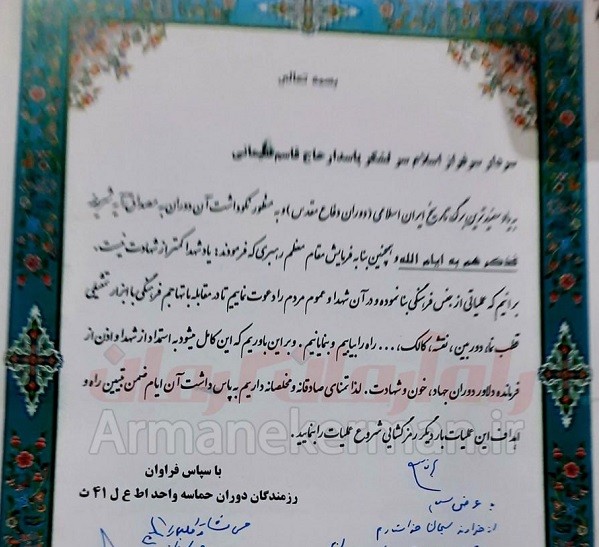 بسمه تعالی
سردار سرفراز اسلام سر لشکر پاسدار حاج قاسم سلیمانی
بر یاد سفیدترین برگ تاریخ ایران اسلامی (دوران دفاع مقدس) و به منظور نکوداشت آن دوران به مصداق آیه شریفه
فذکر هم به ایام الله و همچنین بنا به فرمایش مقام معظم رهبری که فرمودند: یاد شهدا کمتر از شهادت نیست.
برانیم که عملیاتی از جنس فرهنگی بنا نموده و در آن شهدا و عموم مردم را دعوت نماییم تا در مقابله با تهاجم فرهنگی با ابزار تفضیلی
قطب نما، دوربین، نقشه، کالک، ... راه را بیابیم و بنمایانیم . و بر این باوریم که این کامل میشود به استمداد از شهدا و اذن از
فرمانده دلاور دوران جهاد، خون و شهادت. لذا تمنای صادقانه و مخلصانه داریم به پاس داشت آن ایام ضمن تبیین راه و
اهداف این عملیات بار دیگر رمز گشایی شروع عملیات را بنمایید .
با سپاس فراوان
رزمندگان دوران حماسه واحد اط ع ل ۴۱ ث
با عرض سلام
از خداوند سبحان
راه آرمان کرمان
Armanekerman.ir